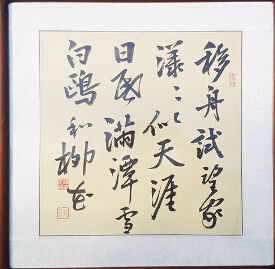 移舟試望家
漾〻似天涯
日暮滿潭雪
白鷗和柳花